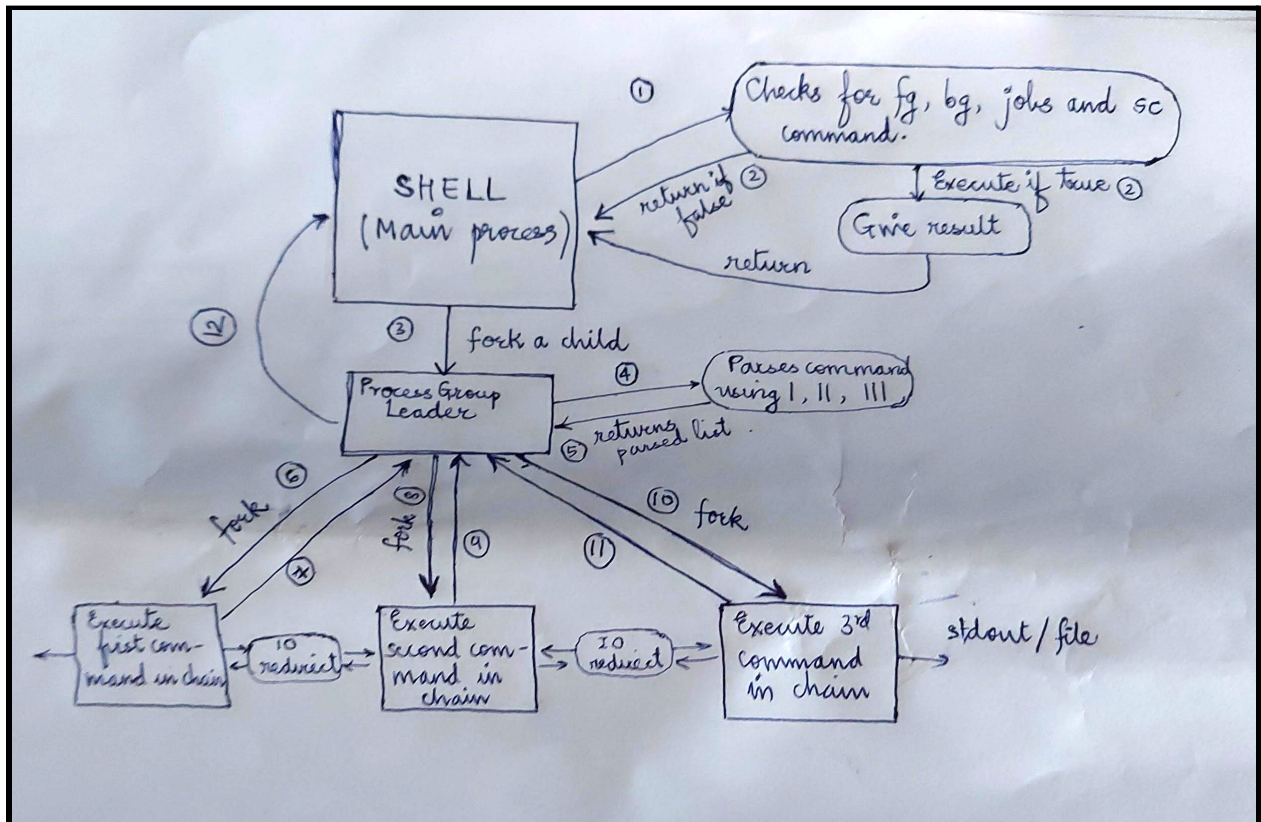 ①
Checks for fg, bg, jobs and sc
command.
SHELL
(Main process)
return if
false ②
Execute if true ②
Give result
return
⑫
③
fork a child
④
Parses command
using |, ||, |||
Process Group
Leader
⑤ returns
parsed list .
fork ⑥
fork ⑧
⑨
⑩ fork
⑪
Execute
first com-
mand in chain
IO
redirect
Execute
second com-
mand in
chain
IO
redirect
Execute 3rd
command
in chain
stdout / file